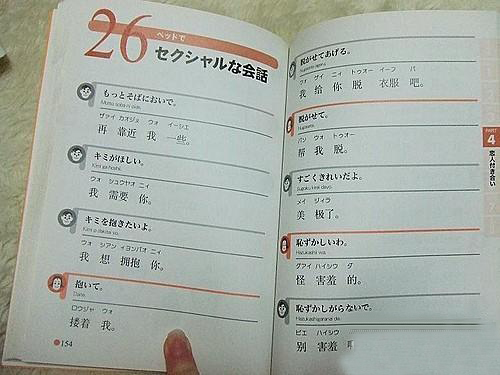 26
ベッドで
セクシャルな会話
もっとそばにおいで。
Motto soba ni oide.
ヅァイ カオジェ ウォ イーシエ
再 靠近 我 一些。
キミがほしい。
Kimi ga hoshii.
ウォ シュウヤオ ニィ
我 需要 你。
キミを抱きたいよ。
Kimi o dakitai yo.
ウォ シアン イヨンバオ ニィ
我 想 拥抱 你。
抱いて。
Daite.
ロウジャ ウォ
搂着 我。
154
脱がせてあげる。
Nugasete ageru.
ウォ ゲイ ニィ トゥオー イーフ バ
我 给 你 脱 衣服 吧。
脱がせて。
Nugasete.
バン ウォ トゥオー
帮 我 脱。
すごくきれいだよ。
Sugoku kirei dayo.
メイ ジィラ
美 极了。
恥ずかしいわ。
Hazukashii wa.
グアイ ハイシウ ダ
怪 害羞 的。
恥ずかしがらないで。
Hazukashigaranai de.
ビエ ハイシウ
别 害羞
PART
4
恋人付き合い